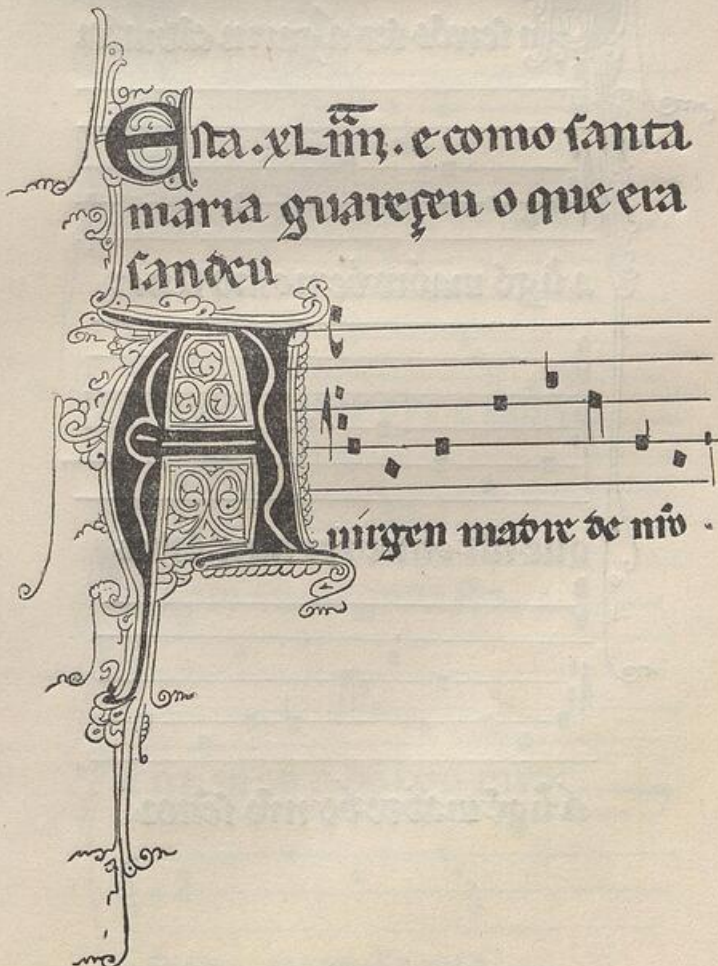 Esta .xLiiij. e como santa
maria guareçeu o que era
sandeu
A uirgen madre de nr̃o